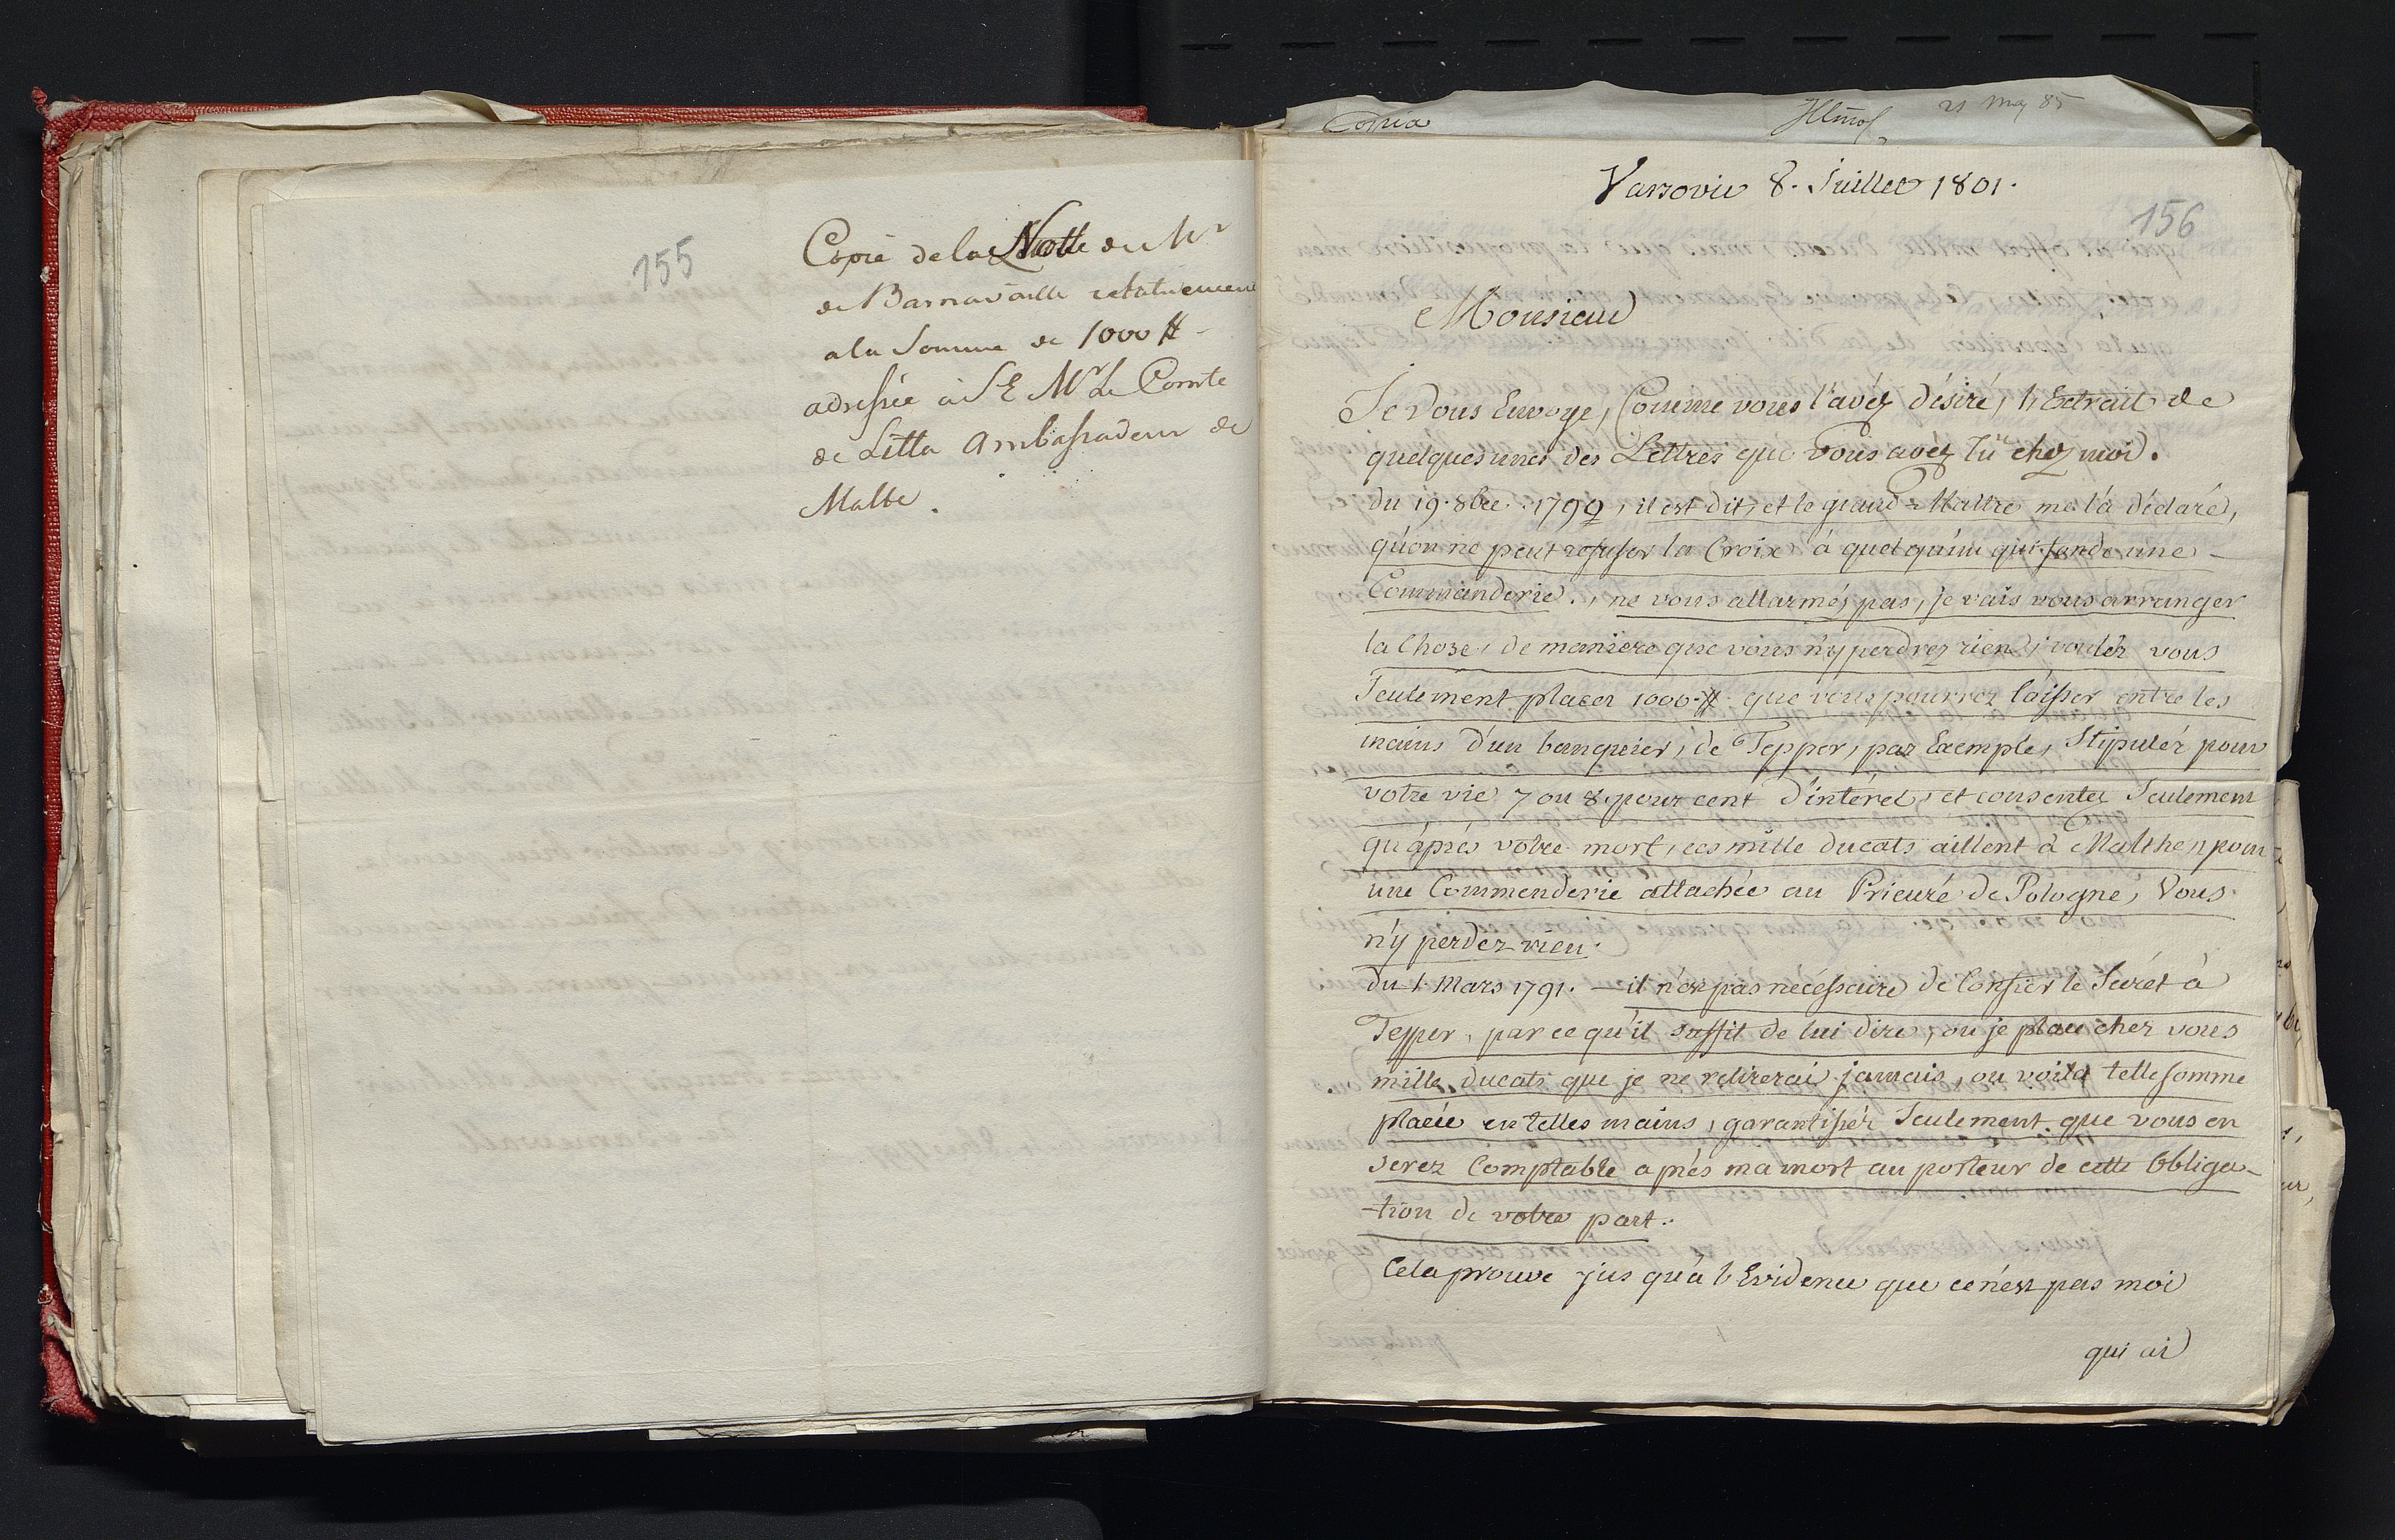 155
Copie de la Notte de Mr
de Barnavaille relativement
a la Somme de 1000 #
adressée à S E Mr Le Comte
de Litta Ambassadeur de
Malte.
Copia
21 May 85
Varsovie 8. Juillet 1801.
156
Monsieur
Je vous Envoye, Comme vous l'avéz désiré, l'Extrait de
quelques unes des Lettres que vous avéz lu chez moi.
du 19. 8bre. 1799, il est dit, et le grand-Maitre me l'a déclaré,
qu'on ne peut refuser la Croix à quelqu'un qui fonde une
Commanderie., ne vous allarméz pas, je vais vous arranger
la Chose, de maniere que vous n'y perdrez rien, voulés vous
Seulement placer 1000 # que vous pourrez laisser entre les
mains d'un banquier, de Tepper, par Exemple, Stipulér pour
votre vie 7 ou 8. pour cent d'intéret, et consentez Seulement
qu'après votre mort, ces mille ducats aillent à Malthe, pour
une Commenderie attachée au Prieuré de Pologne, Vous
n'y perdez rien.
du 1. Mars 1791. — il n'est pas nécessaire de Confier le Secrét à
Tepper, par ce qu'il suffit de lui dire, ou je place chez vous
mille ducats que je ne retirerai jamais, ou voila telle somme
placée en telles mains, garantissér Seulement que vous en
serez Comptable après ma mort au porteur de cette Obliga-
-tion de votre part.
Cela prouve jus qu'à l'Evidence que ce n'est pas moi
qui ai